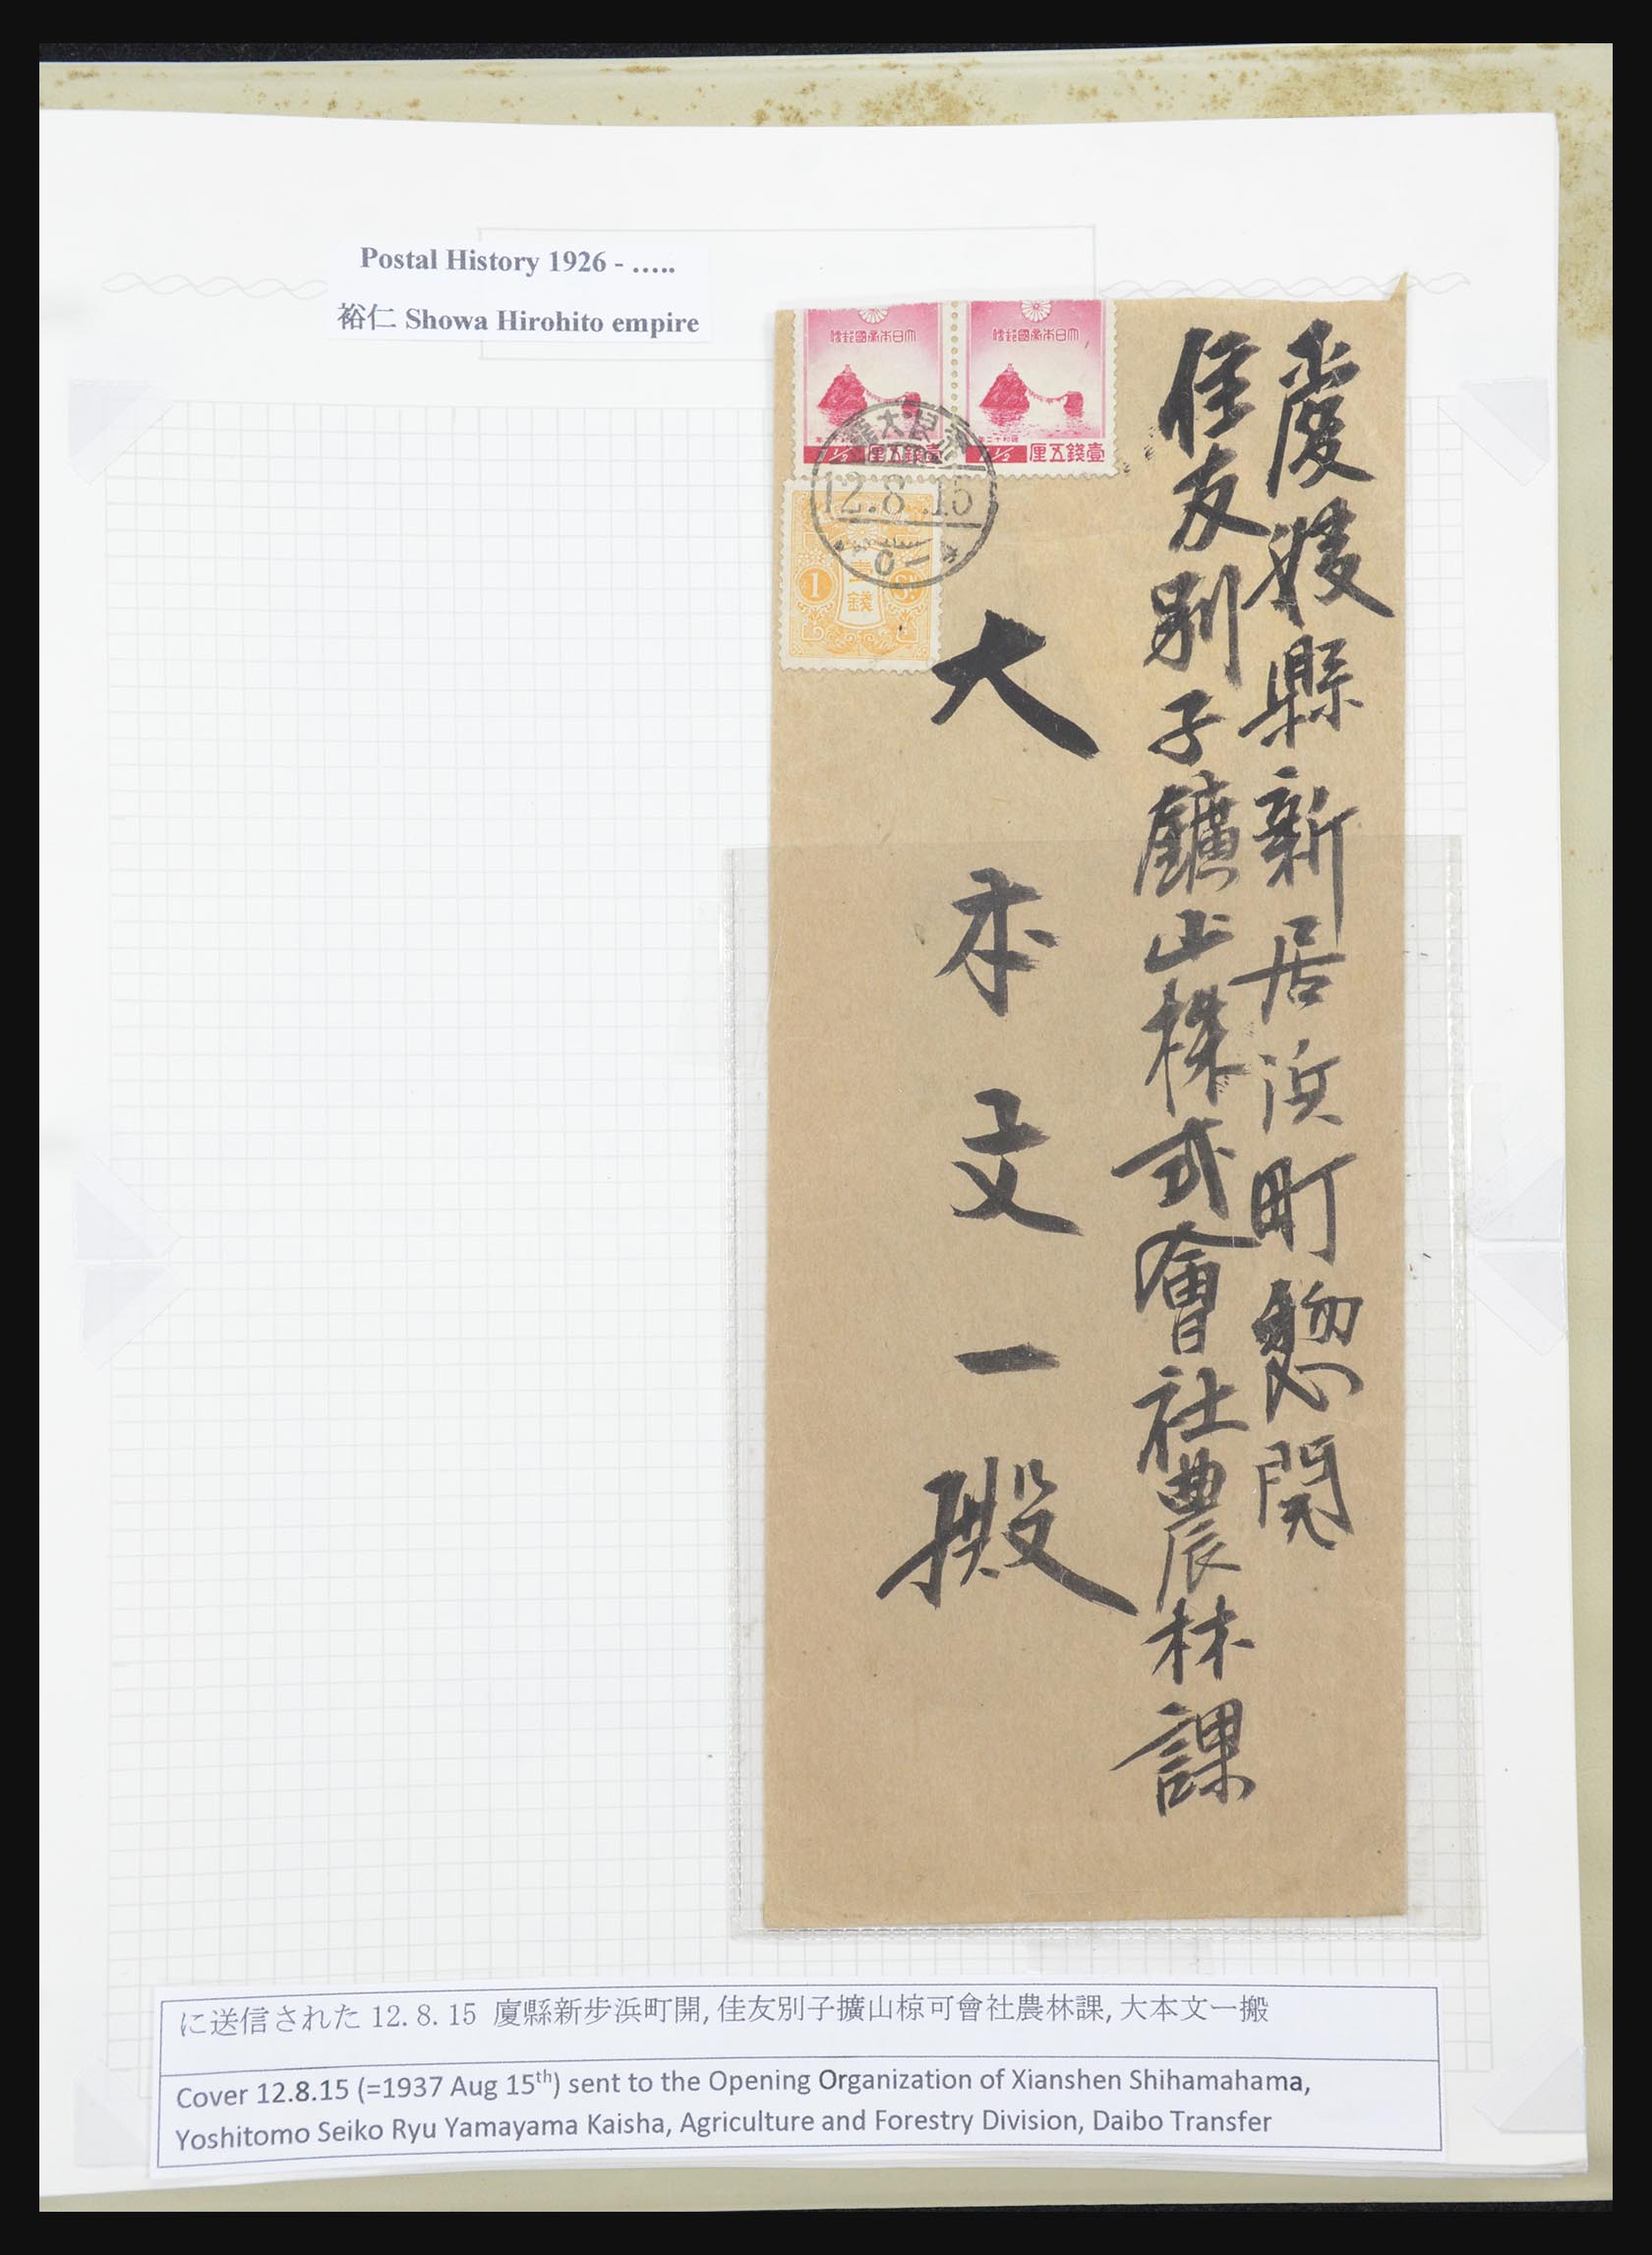 Postal History 1926 - .....
裕仁 Showa Hirohito empire
大日本帝國郵便
大日本帝國郵便
昭和十二年
1½
壹錢五厘
1½
壹錢五厘
12.8.15
1
壹
錢
愛媛縣新居浜町惣開
住友別子鑛山株式會社農林課
大本文一殿
に送信された 12.8.15 廈縣新歩浜町開, 佳友別子擴山椋可會社農林課, 大本文一搬
Cover 12.8.15 (=1937 Aug 15th) sent to the Opening Organization of Xianshen Shihamahama,
Yoshitomo Seiko Ryu Yamayama Kaisha, Agriculture and Forestry Division, Daibo Transfer